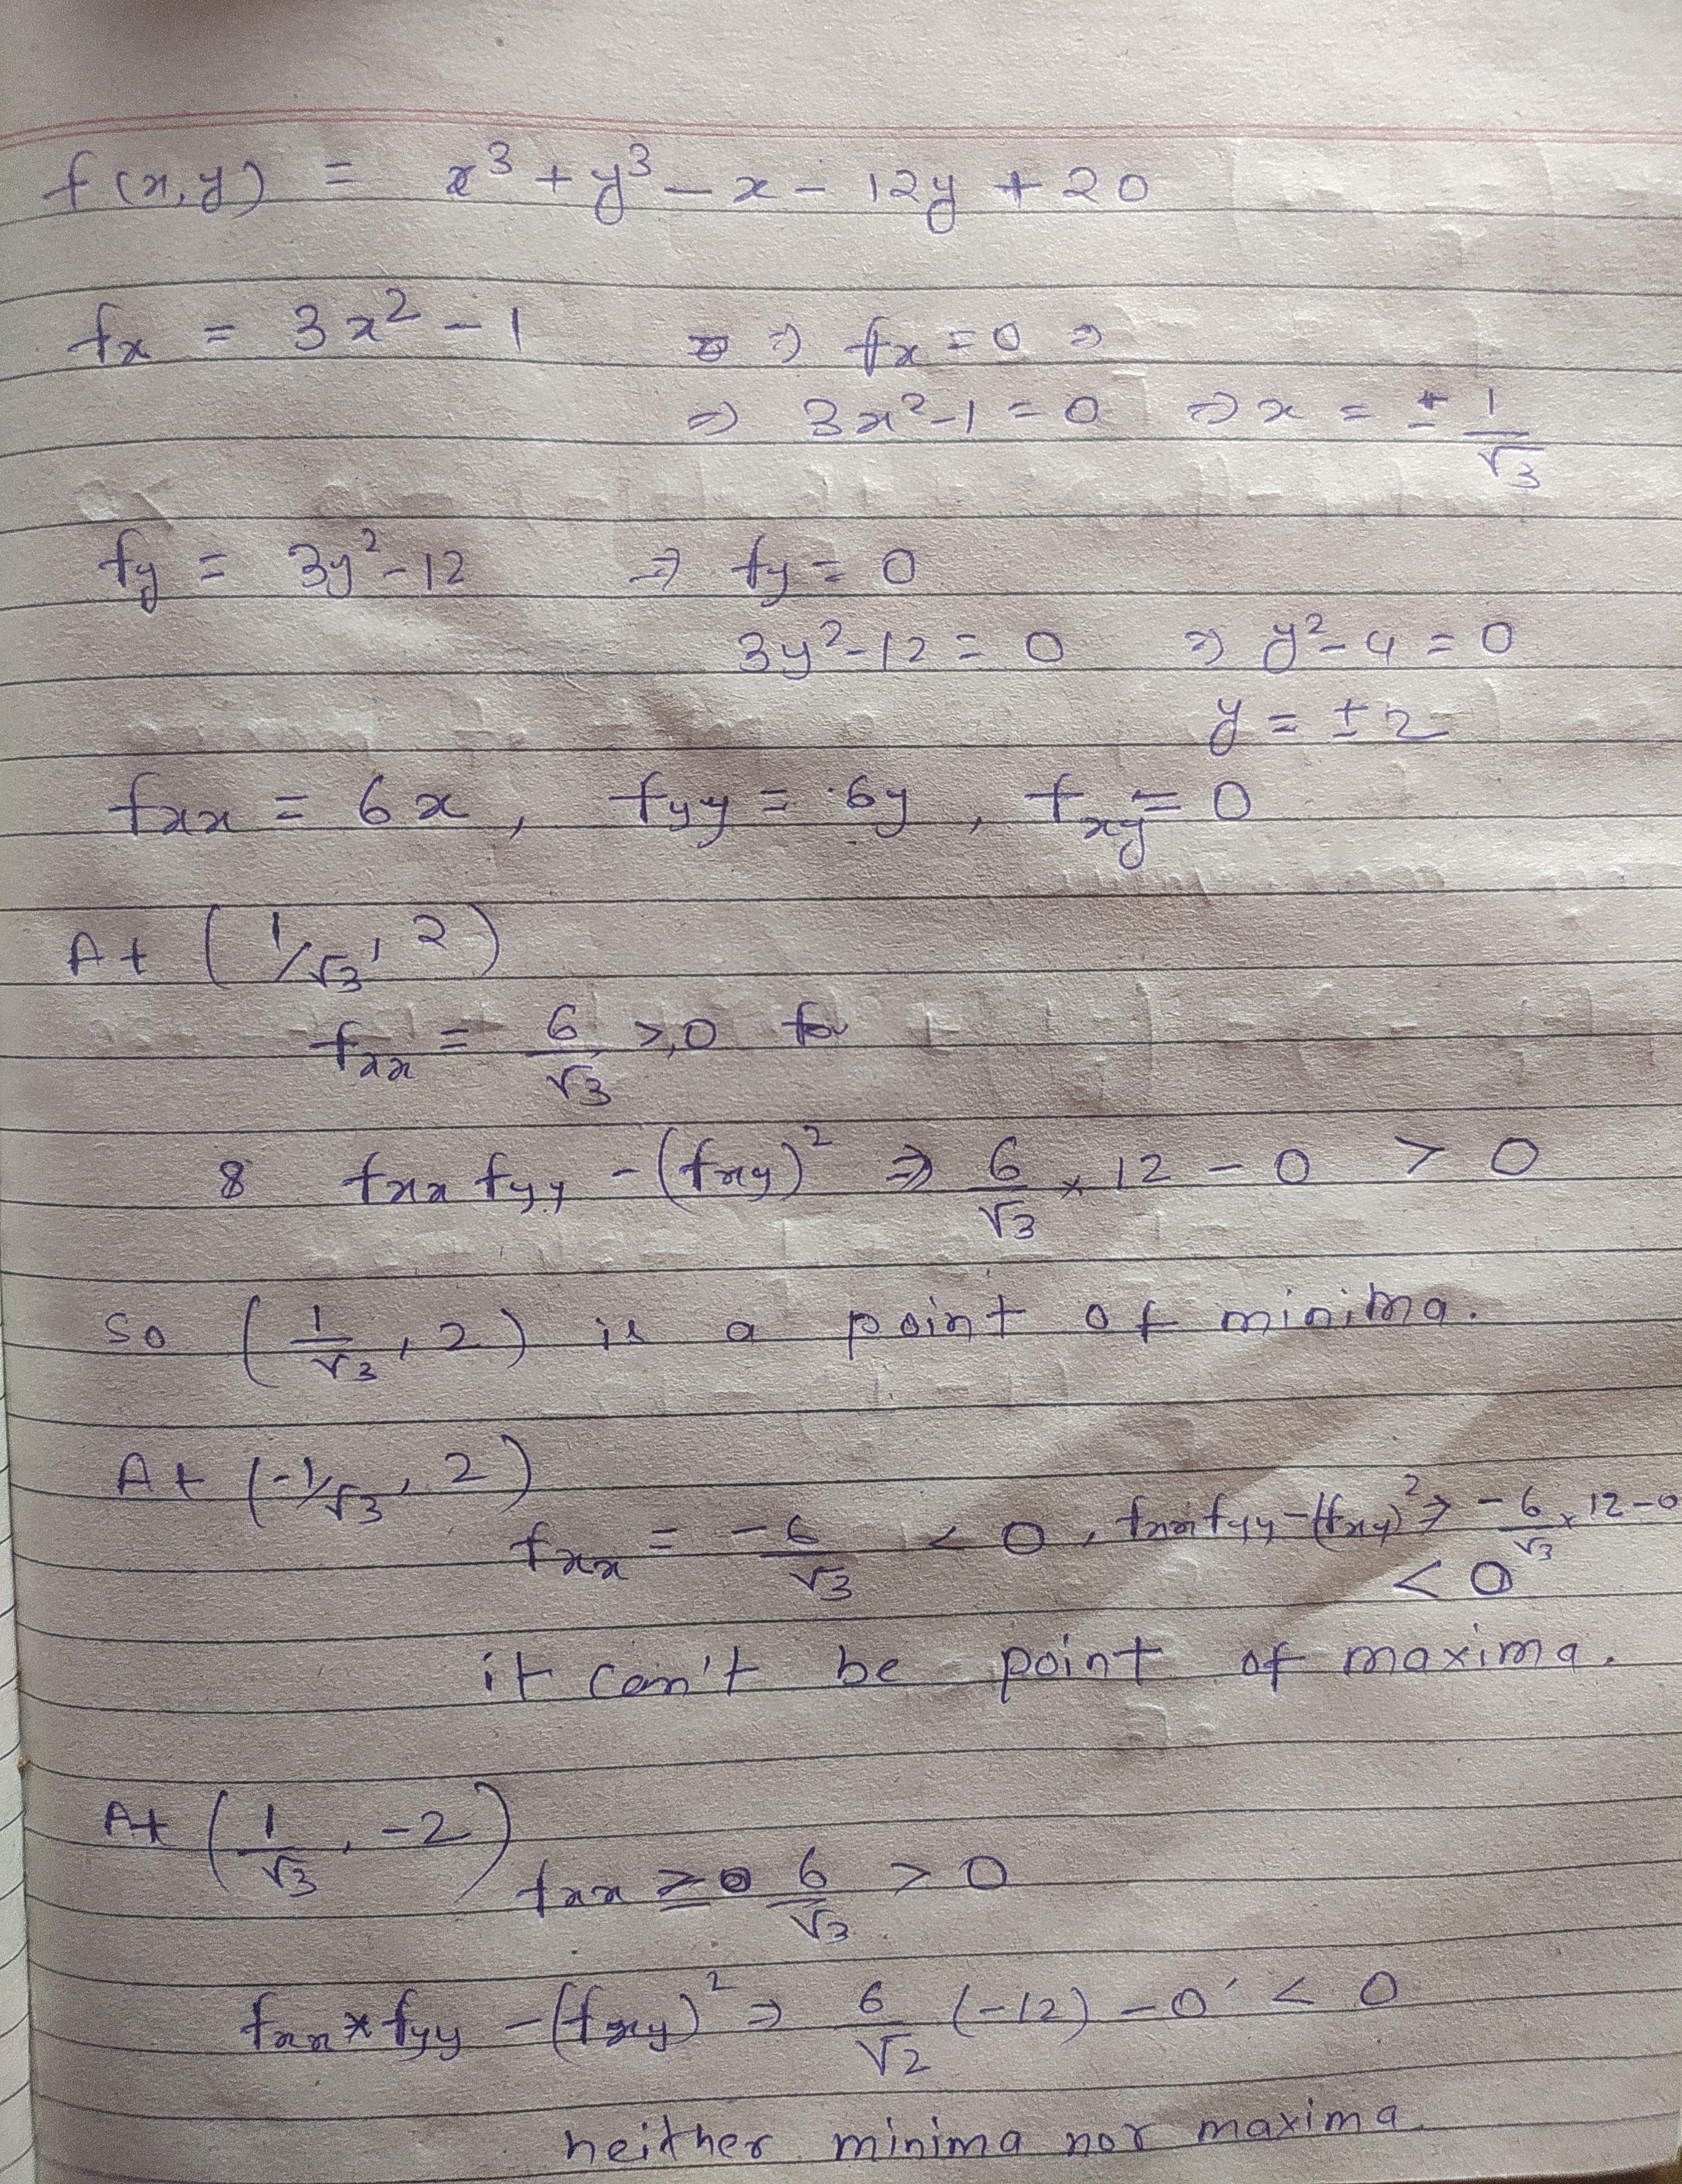 f(x,y) = x³ + y³ - x - 12y + 20
fx = 3x² - 1 ⇒ fx = 0 ⇒
⇒ 3x² - 1 = 0 ⇒ x = ± 1/√3
fy = 3y² - 12 ⇒ fy = 0
3y² - 12 = 0 ⇒ y² - 4 = 0
y = ± 2
fxx = 6x, fyy = 6y, fxy = 0
At (1/√3, 2)
fxx = 6/√3 > 0 for
& fxx fyy - (fxy)² ⇒ 6/√3 × 12 - 0 > 0
So (1/√3, 2) is a point of minima.
At (-1/√3, 2)
fxx = -6/√3 < 0, fxx fyy - (fxy)² ⇒ -6/√3 × 12 - 0
< 0
it can't be point of maxima.
At (1/√3, -2)
fxx = 6/√3 > 0
fxx * fyy - (fxy)² ⇒ 6/√2 (-12) - 0 < 0
neither minima nor maxima.